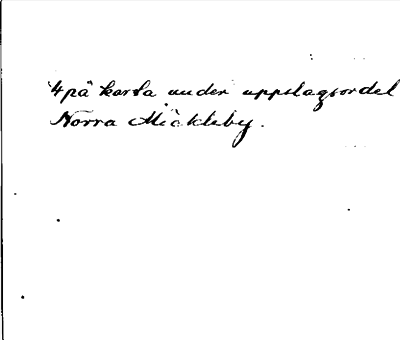 4 på karta under uppslagsordet
Norra Möckleby.